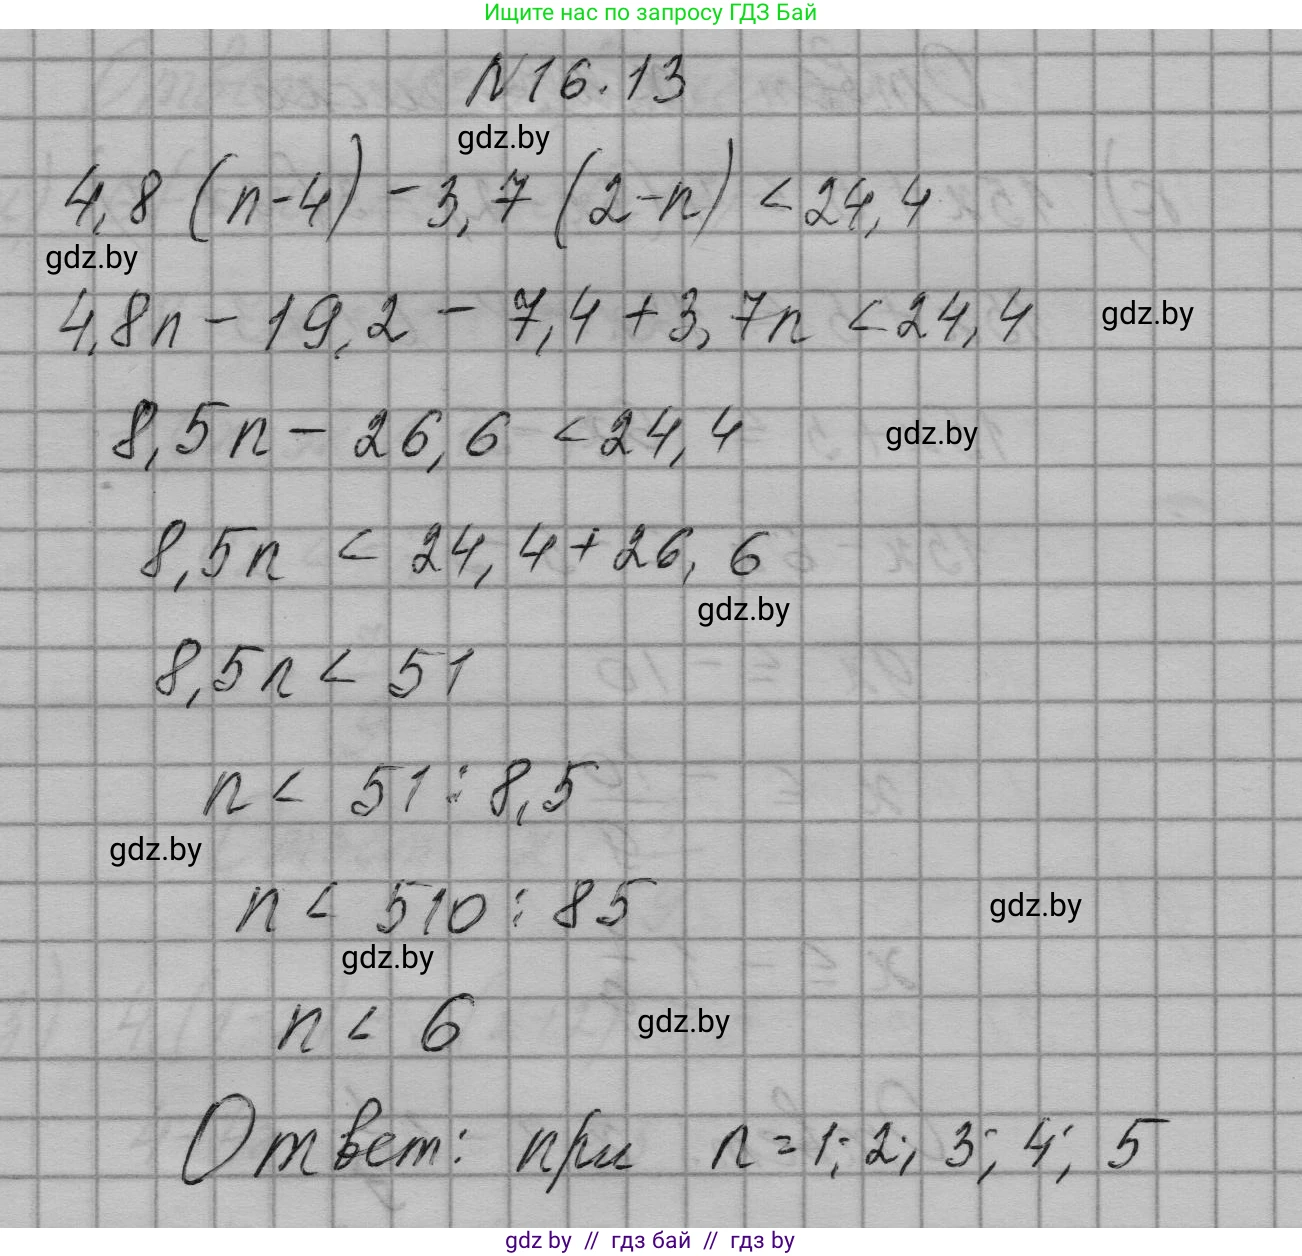 Ищите нас по запросу ГДЗ Бай
N16.13
gdz.by
4,8 (n-4) - 3,7 (2-n) < 24,4
gdz.by
4,8n - 19,2 - 7,4 + 3,7n < 24,4
gdz.by
8,5n - 26,6 < 24,4
gdz.by
8,5n < 24,4 + 26,6
gdz.by
8,5n < 51
n < 51 : 8,5
gdz.by
n < 510 : 85
gdz.by
gdz.by
n < 6
gdz.by
Ответ: при n = 1; 2; 3; 4; 5
gdz by // гдз бай // гдз by